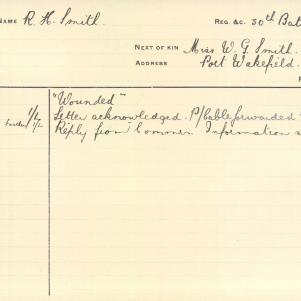 NAME R. H. Smith.
REG. &C. 50th Bat
NEXT OF KIN Miss W. G. Smith.
ADDRESS Port Wakefield.
"Wounded"
1/2 Letter acknowledged. P/Cable forwarded
1/2 Reply from Commen. Information